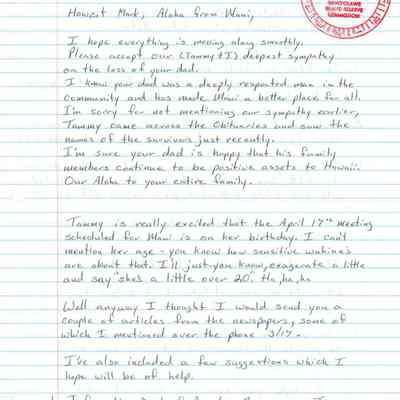 Howzit Mark, Aloha from Maui,
I hope everything is moving along smoothly.
Please accept our (Tammy & I) deepest sympathy
on the loss of your dad.
I know your dad was a deeply respected man in the
community and has made Maui a better place for all.
I'm sorry for not mentioning our sympathy earlier,
Tammy came across the Obituaries and saw the
names of the survivors just recently.
I'm sure your dad is happy that his family
members continue to be positive assets to Hawaii.
Our Aloha to your entire family.
Tammy is really excited that the April 17th meeting
scheduled for Maui is on her birthday. I can't
mention her age - you know how sensitive wahine's
are about that. I'll just, you know, exagerate a little
and say "she's a little over 20". Ha, ha, ha
Well anyway I thought I would send you a
couple of articles from the newspapers, some of
which I mentioned over the phone 3/17.
I've also included a few suggestions which I
hope will be of help.